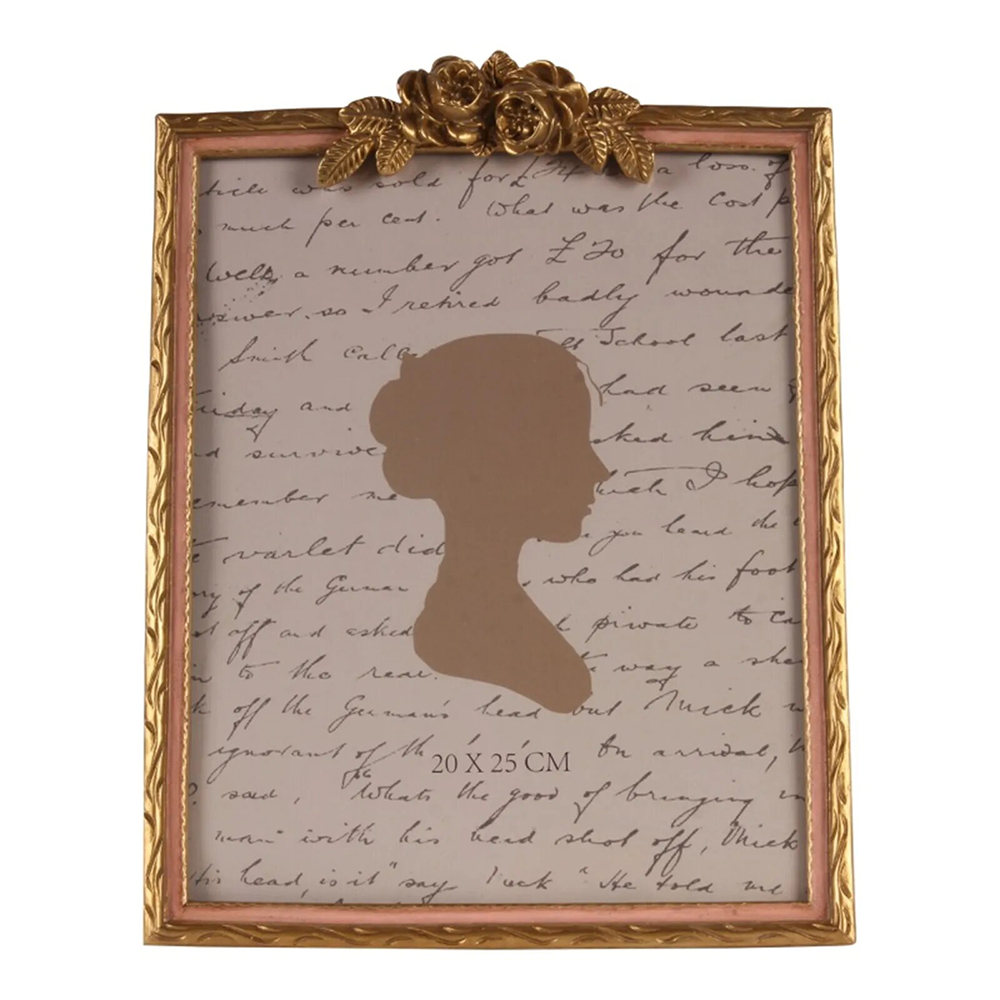 was sold for £ a loss. of
much per cent. What was the cost p
Well, a number got £20 for the
so I retired badly wounde
Smith Calle School last
and had seen
survive sked him
member me I hop
varlet did you heard the
of the German who had his foot
off and asked private to ca
to the rear. way a she
off the German's head but Mick
ignorant of th On arrival,
20 X 25 CM
said, "Whats the good of bringing in
man with his head shot off, Mick
His head, is it" say "He told me